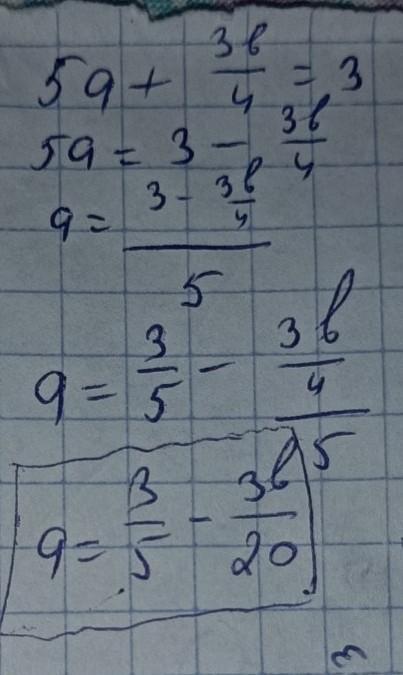 5a + 3b/4 = 3
5a = 3 - 3b/4
a = (3 - 3b/4)/5
a = 3/5 - (3b/4)/5
a = 3/5 - 3b/20
3